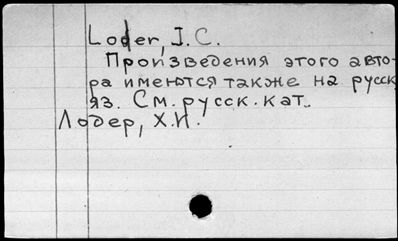 Loder, J.C.
Произведения этого авто-
ра имеются также на русск.
яз. См. русск. кат.
Лодер, Х.И.